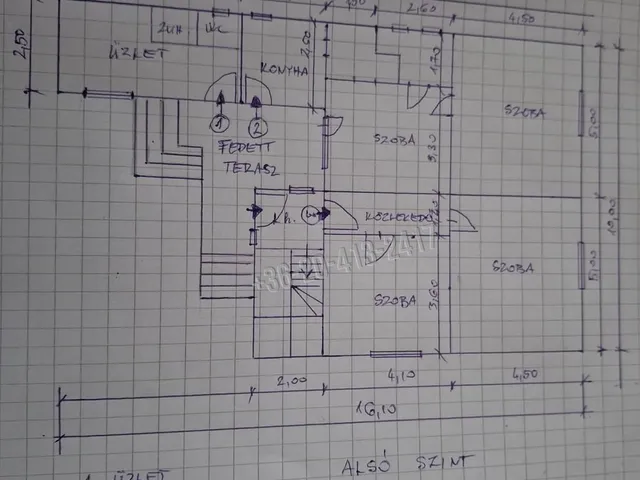 2,60
4,50
2,50
ZUH
WC
ÜZLET
KONYHA
2,00
1,70
SZOBA
5,00
1
2
FEDETT
TERASZ
SZOBA
3,30
10,00
KÖZLEKEDŐ
SZOBA
5,00
SZOBA
3,60
+36-20-413-2417
2,00
4,10
4,50
16,10
ALSÓ SZINT
ÜZLET